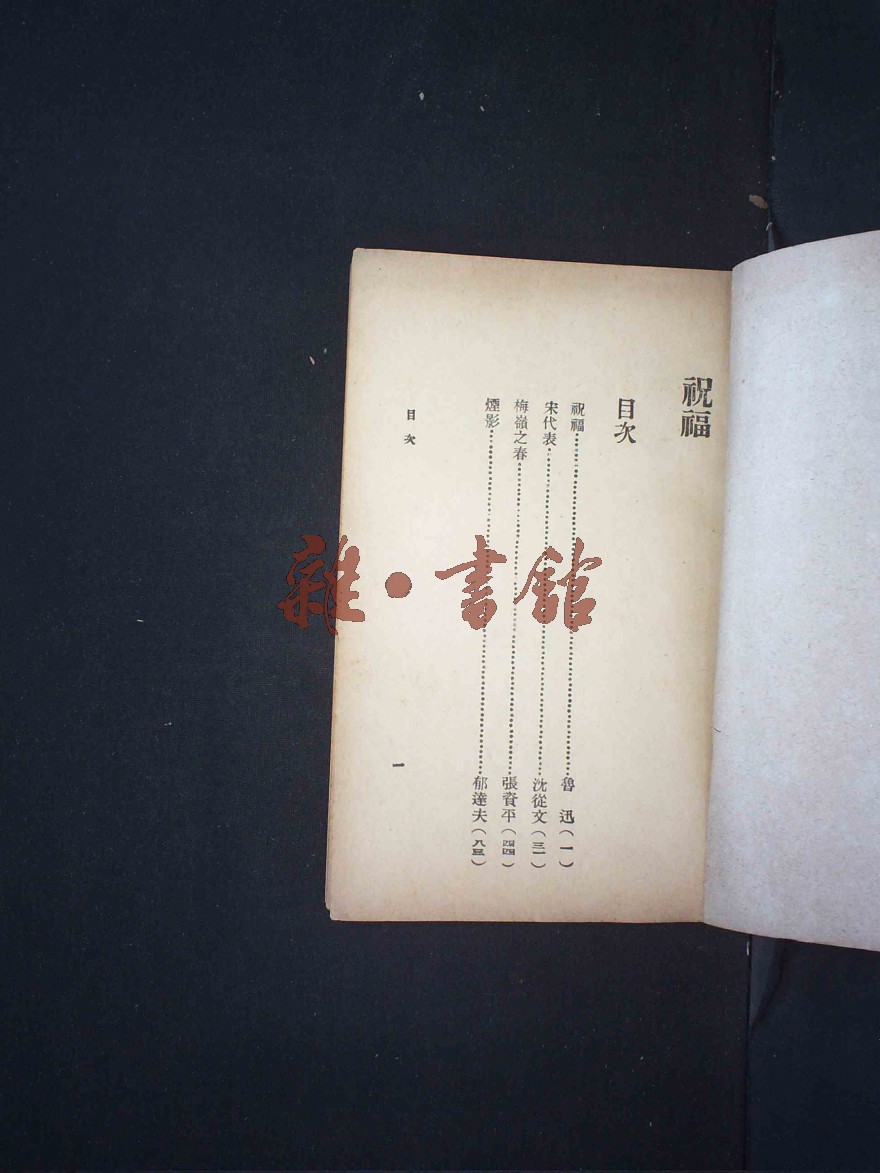 祝福
目次
祝福⋯⋯魯　迅(一)
宋代表⋯⋯沈從文(三一)
梅嶺之春⋯⋯張資平(四四)
煙影⋯⋯郁達夫(八三)
目次
一
雜·書館